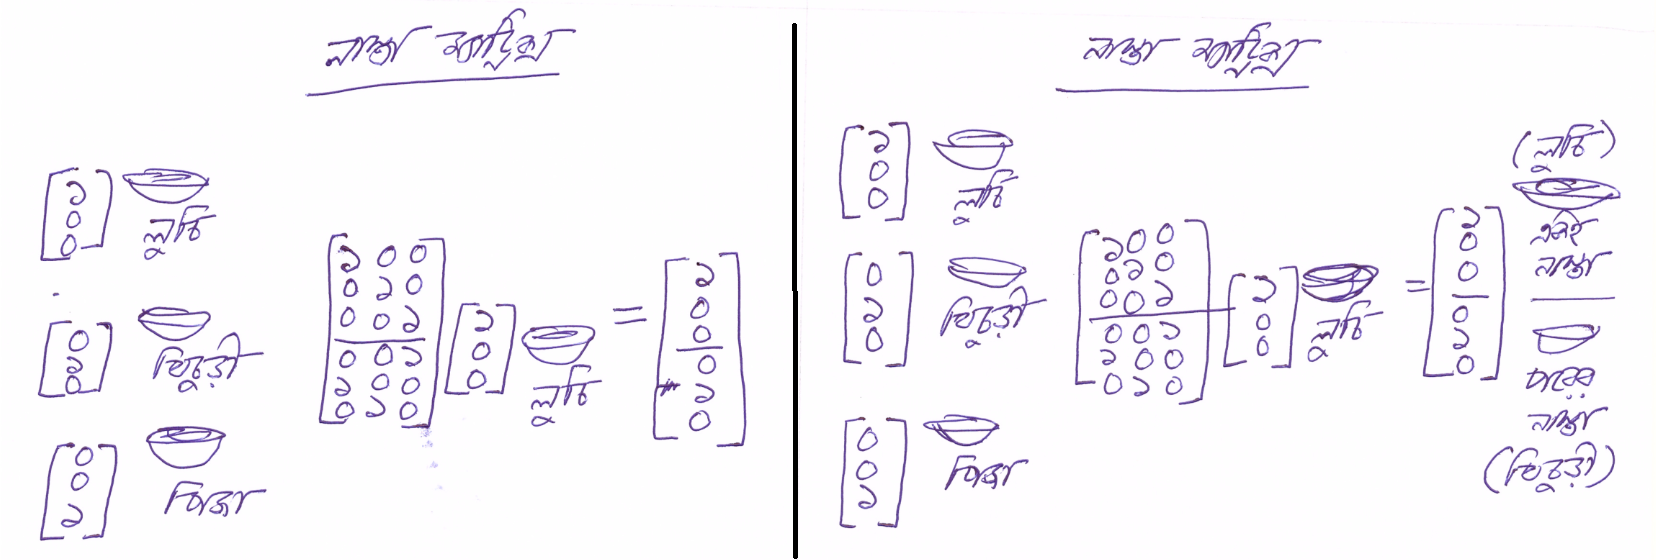 নাস্তা ম্যাট্রিক্স
[১
০
০]
লুচি
[০
১
০]
খিচুড়ী
[০
০
১]
পিজ্জা
[১ ০ ০
০ ১ ০
০ ০ ১
০ ০ ১
১ ০ ০
০ ১ ০]
[১
০
০]
লুচি
=
[১
০
০
০
১
০]
নাস্তা ম্যাট্রিক্স
[১
০
০]
লুচি
[০
১
০]
খিচুড়ী
[০
০
১]
পিজ্জা
[১ ০ ০
০ ১ ০
০ ০ ১
০ ০ ১
১ ০ ০
০ ১ ০]
[১
০
০]
লুচি
=
[১
০
০
০
১
০]
(লুচি)
একই
নাস্তা
পরের
নাস্তা
(খিচুড়ী)